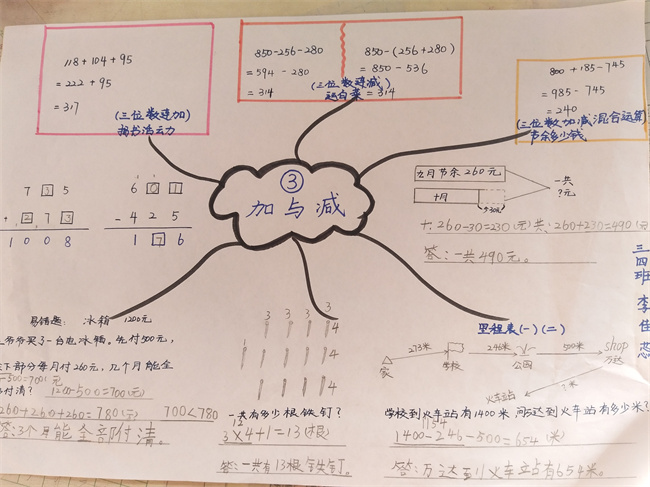 118+104+95
=222+95
=317
(三位数连加)
捐书活动
850-256-280
=594-280
=314
850-(256+280)
=850-536
=314
(三位数连减)
运白菜
800+185-745
=985-745
=240
(三位数加减混合运算)
节余多少钱
③
加与减
7 3 5
+ 2 7 3
1 0 0 8
6 0 1
- 4 2 5
1 7 6
九月节余260元
十月
少30元
一共
?元
十:260-30=230(元)共:260+230=490(元)
答:一共490元。
三四班 李佳
易错题:
冰箱 1200元
爷爷买了一台电冰箱。先付500元,
下部分每月付260元,几个月能全
付清?
1200-500=700(元)
260+260+260=780(元) 700<780
答:3个月能全部付清。
3 3 3 3
1 4
4
4
一共有多少根铁钉?
12
3×4+1=13(根)
答:一共有13根铁钉。
里程表(一)(二)
家
273米
学校
246米
公园
500米
shop
万达
火车站
?米
学校到火车站有1400米,万达到火车站有多少米?
1154
1400-246-500=654(米)
答:万达到火车站有654米。